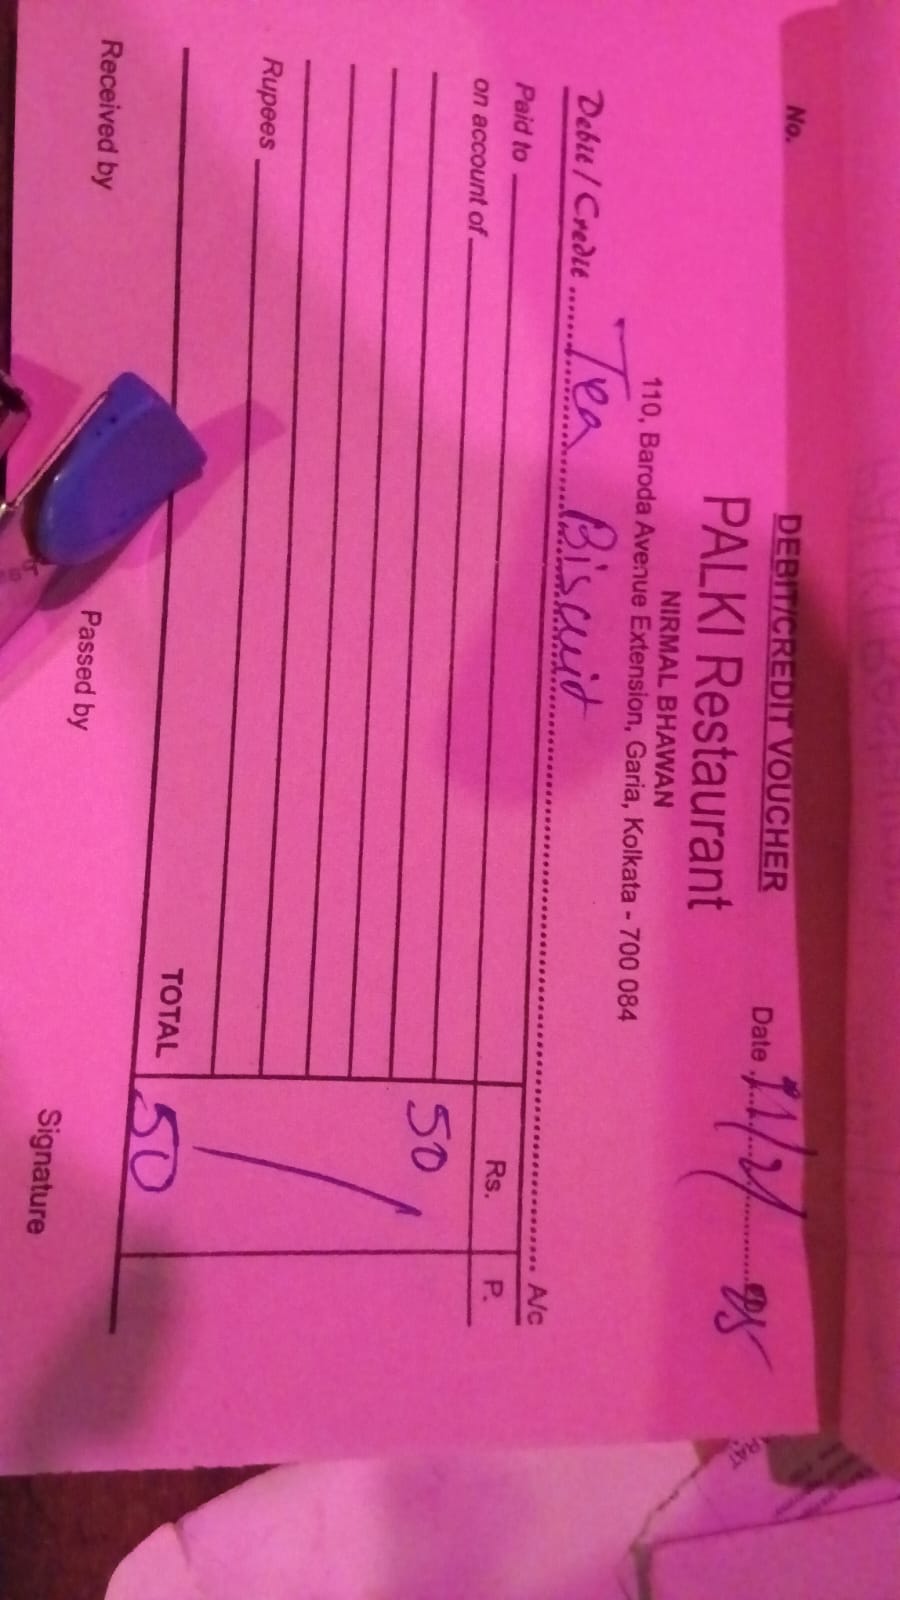 DEBIT/CREDIT VOUCHER
No.
Date
PALKI Restaurant
NIRMAL BHAWAN
110, Baroda Avenue Extension, Garia, Kolkata - 700 084
Debit / Credit Tea Biscuit A/c
Paid to
Rs. P.
on account of
50
Rupees
TOTAL 50
Received by Passed by Signature